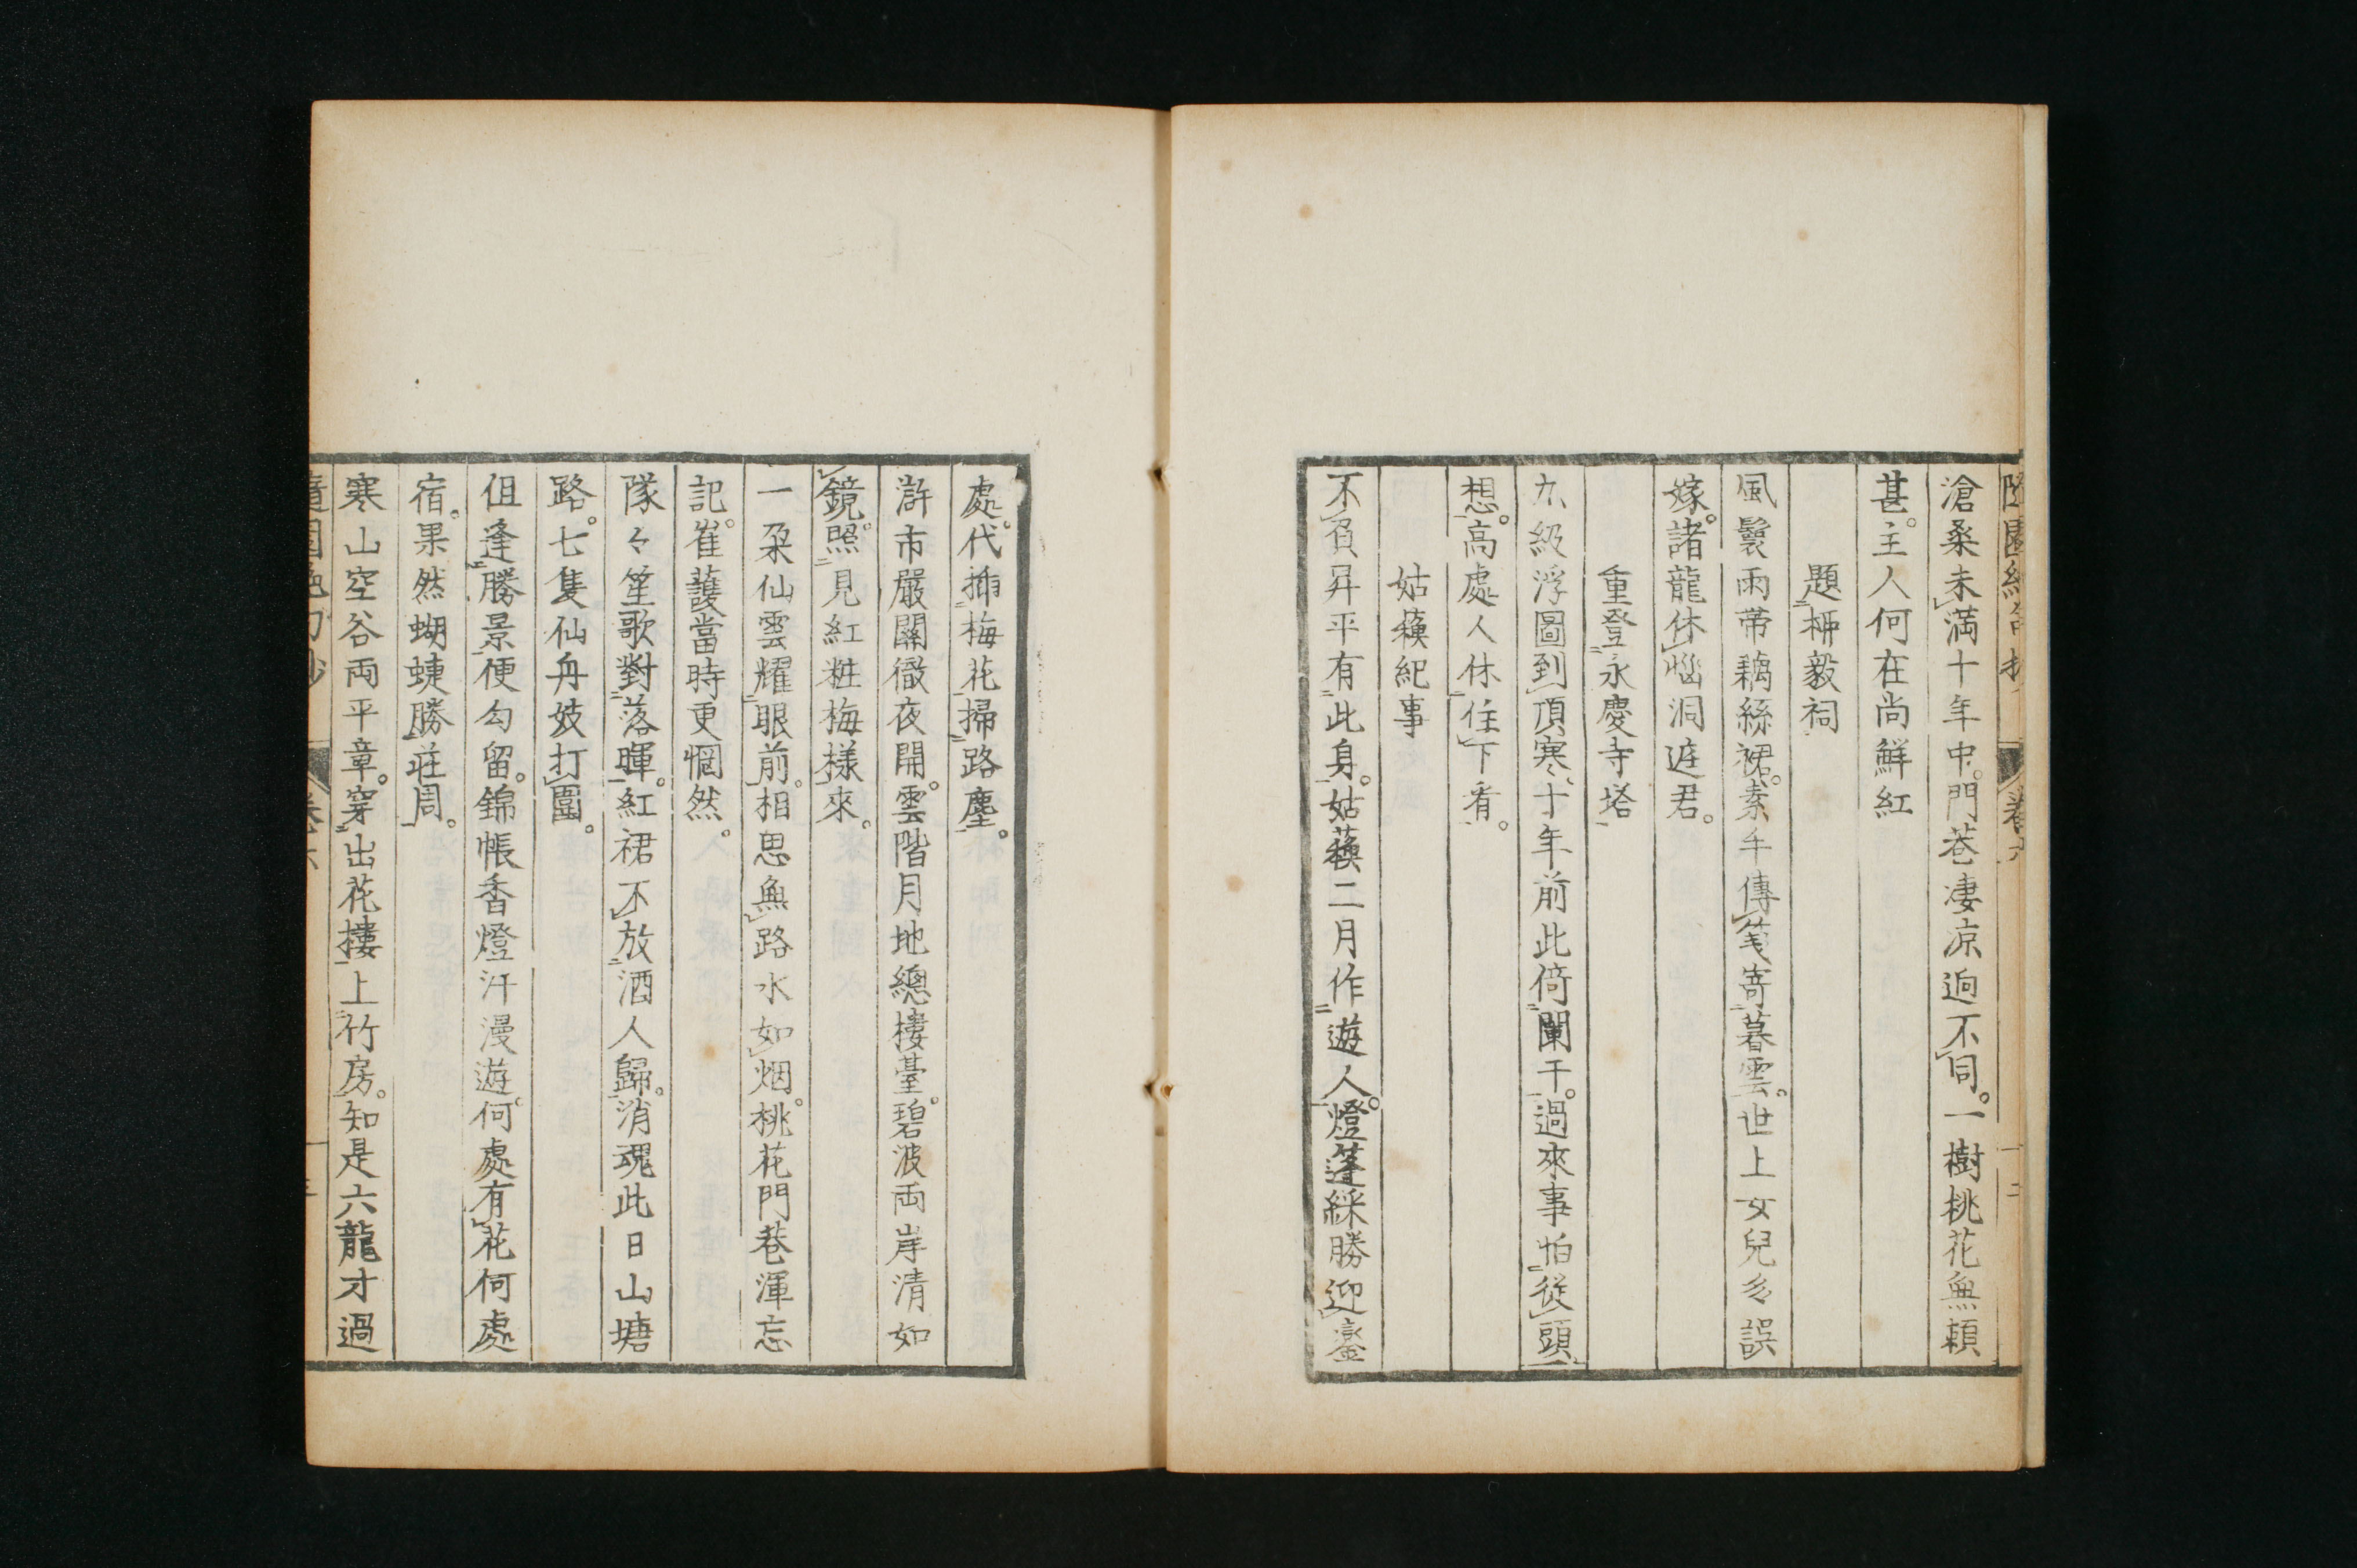 滄桑未満十年中。門巷凄凉逈不同。一樹桃花無頼
甚。主人何在尚鮮紅
題柳毅祠
風鬟雨帯藕絲裙。素手傳箋寄暮雲。世上女兒多誤
嫁。諸龍休惱洞庭君。
重登永慶寺塔
九級浮圖到頂寒、十年前此倚闌干。過來事怕從頭
想。高處人休住下看。
姑蘓紀事
不負昇平有此身。姑蘓二月作遊人。燈蓬綵勝迎鑾
處。代揷梅花掃路塵。
滸市嚴關徹夜開。雲階月地總樓臺。碧波両岸清如
鏡。照見紅粧梅様來。
一朶仙雲耀眼前。相思無路水如烟。桃花門巷渾忘
記。崔護當時更惘然。
隊々笙歌對落暉。紅裙不放酒人歸。消魂此日山塘
路。七隻仙舟妓打圍。
但逢勝景便勾留。錦帳香燈汗漫遊。何處有花何處
宿。果然蝴蝶勝莊周。
寒山空谷両平章。穿出花樓上竹房。知是六龍才過